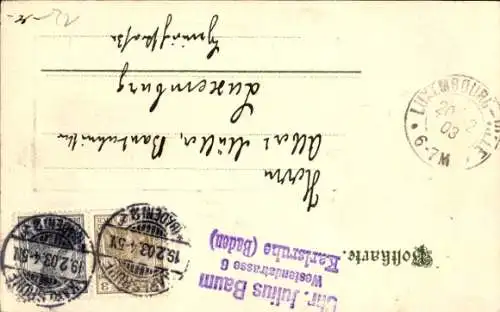 Postkarte.
Chr. Julius Baum
Westendstrasse 6
Karlsruhe (Baden)
Herrn
Albert Müller, Bankbeamter
Luxemburg
LUXEMBOURG-VILLE
20 2
03
6-7M
KARLSRUHE (BADEN) 2
19.2.03.4-5N
KARLSRUHE (BADEN) 2
19.2.03.4-5N
3